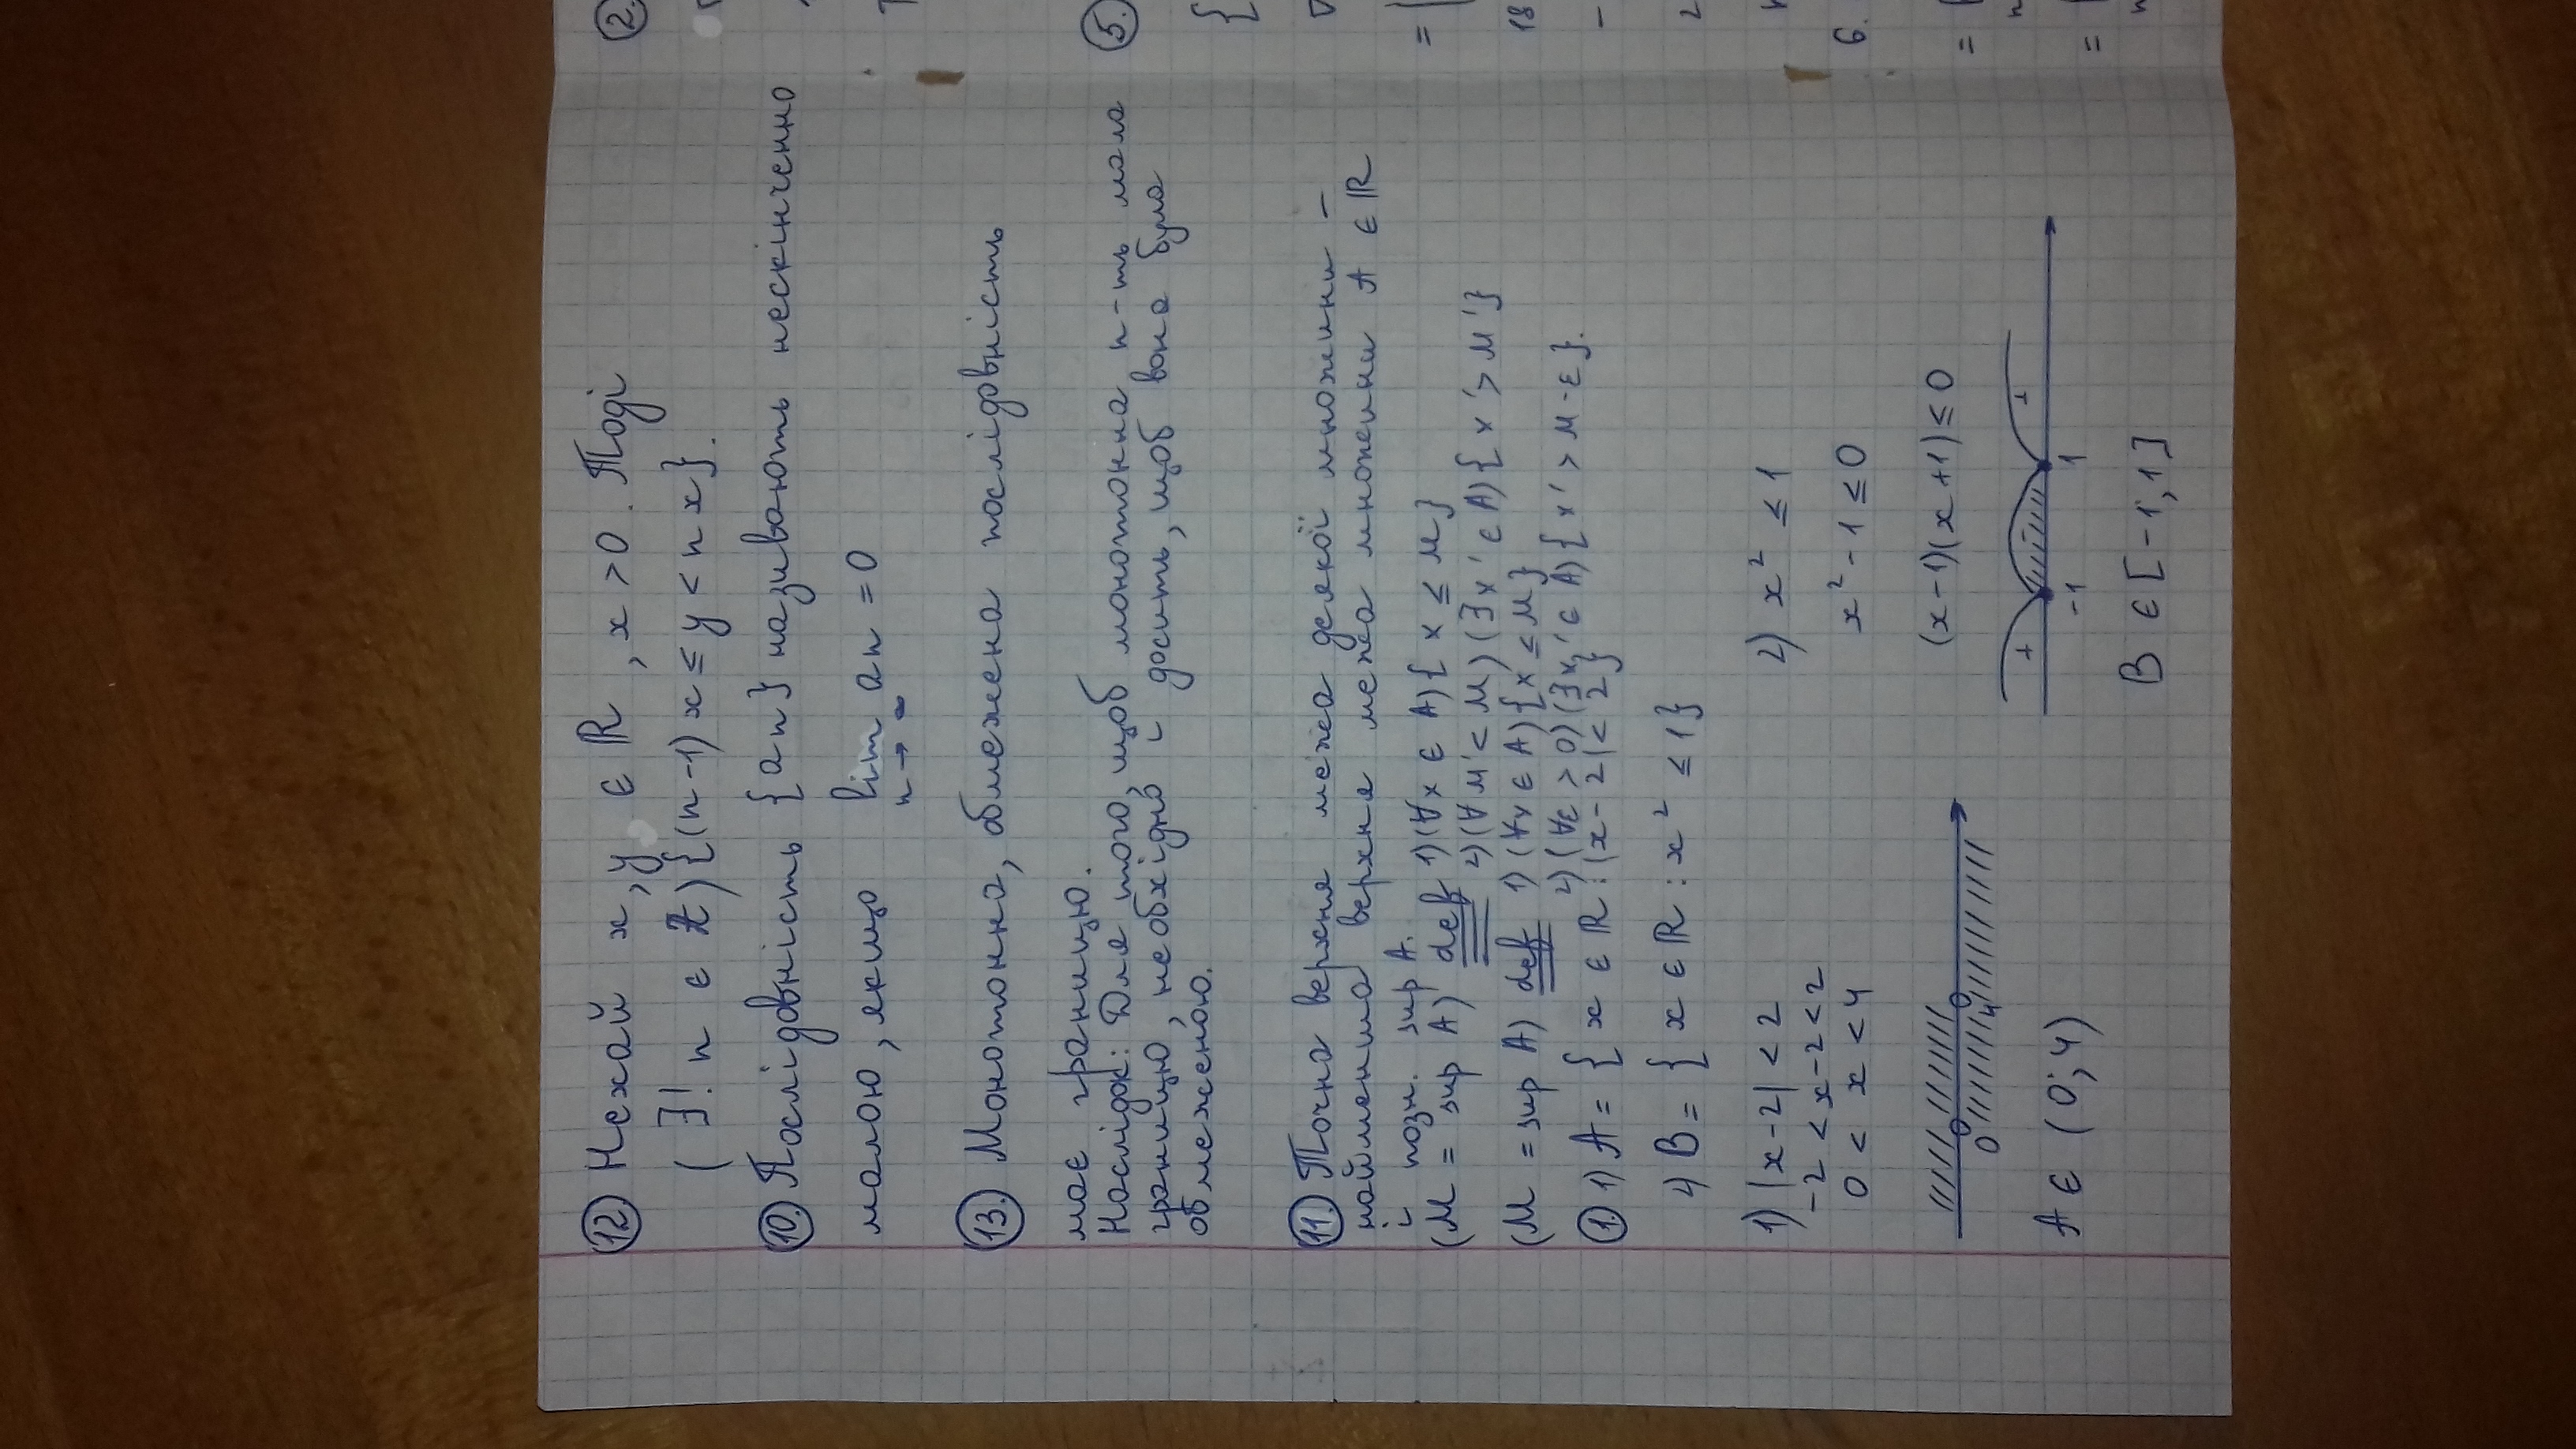 12. Нехай x, y ∈ ℝ, x > 0. Тоді
(∃! n ∈ ℤ) {(n-1)x ≤ y < nx}.
10. Послідовність {an} називають нескінченно
малою, якщо lim an = 0
n → ∞
13. Монотонна, обмежена послідовність
має границю.
Наслідок: Для того, щоб монотонна п-ть мала
границю, необхідно і досить, щоб вона була
обмеженою.
11. Точна верхня межа деякої множини –
найменша верхня межа множини A ∈ ℝ
і позн. sup A.
(M = sup A) def 1) (∀x ∈ A) {x ≤ M}
2) (∀M' < M) (∃x' ∈ A) {x' > M'}
(M = sup A) def 1) (∀x ∈ A) {x ≤ M}
2) (∀ε > 0) (∃x' ∈ A) {x' > M-ε}.
1. 1) A = {x ∈ ℝ : |x-2| < 2}
2) B = {x ∈ ℝ : x² ≤ 1}
1) |x-2| < 2
-2 < x-2 < 2
0 < x < 4
0 4
A ∈ (0; 4)
2) x² ≤ 1
x² - 1 ≤ 0
(x-1)(x+1) ≤ 0
+ +
-1 1
B ∈ [-1; 1]
2.
5.
{
=
18
-
2
6.
=
=